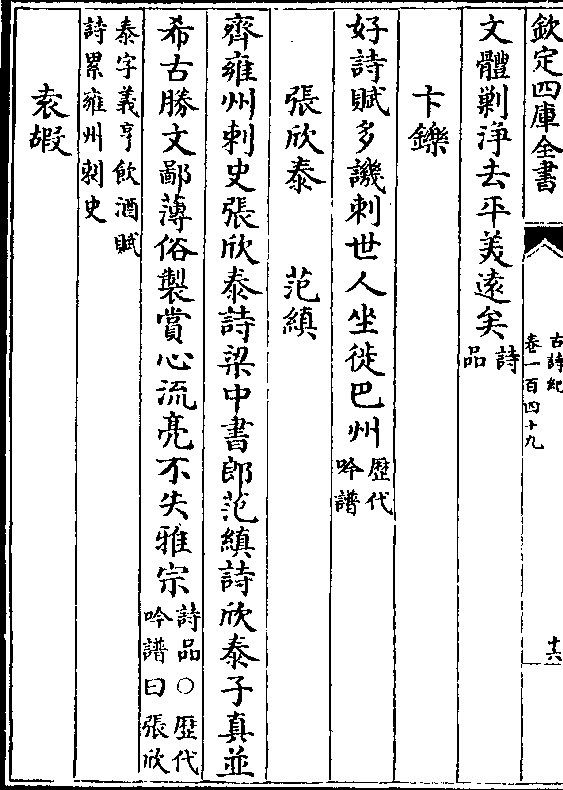 欽定四庫全書
古詩紀
卷一百四十九
十六
文體剿淨去平美遠矣詩
品
卞鑠
好詩賦多譏刺世人坐徙巴州歴代
吟譜
張欣泰 范縝
齊雍州刺史張欣泰詩梁中書郎范縝詩欣泰子真並
希古勝文鄙薄俗製賞心流亮不失雅宗詩品○歴代
吟譜曰張欣
泰字義亨飲酒賦
詩累雍州刺史
袁嘏